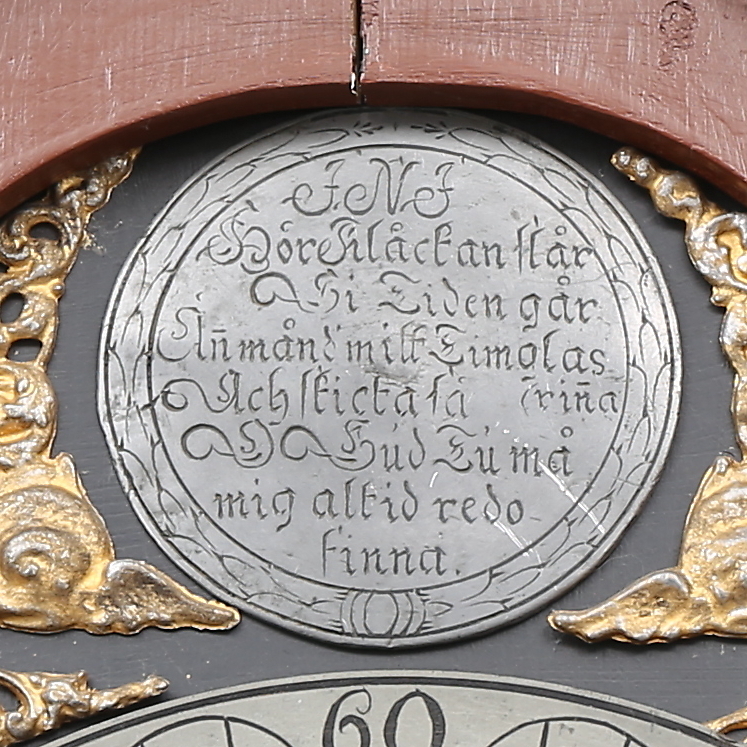 J N J
Hör Klåckan slår
Hi Tiden går
Än månd mitt Timglas
Ach skicka så riña
O Gud Tu må
mig altid redo
finna.
60